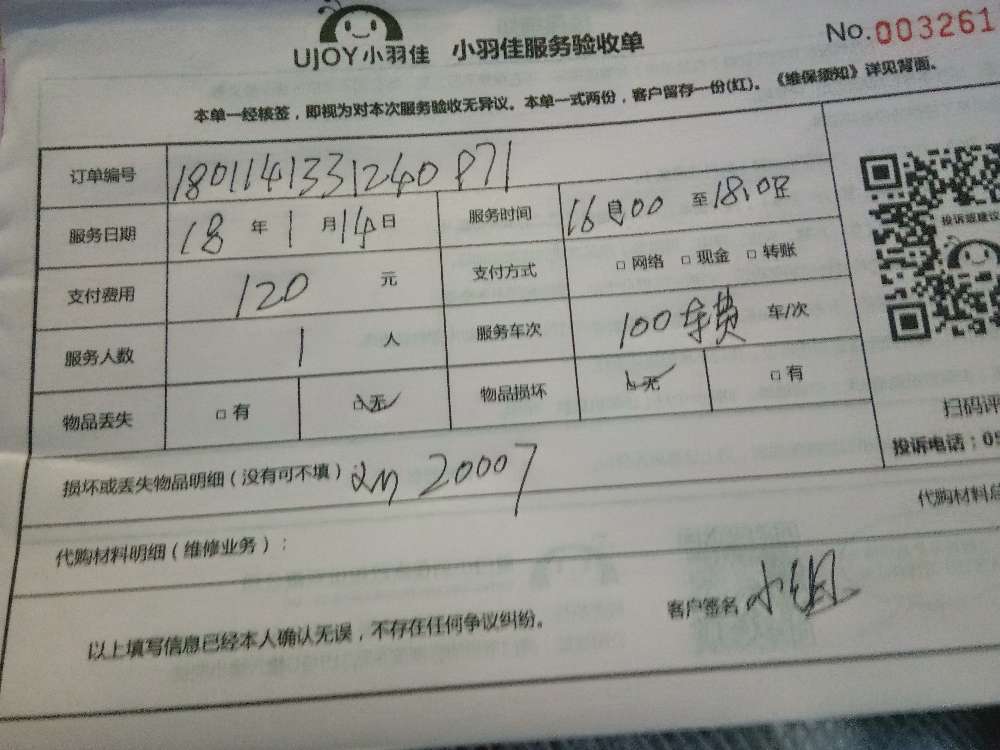 UJOY小羽佳 小羽佳服务验收单 No.003261
本单一经核签，即视为对本次服务验收无异议。本单一式两份，客户留存一份(红)。《维保须知》详见背面。
订单编号 1801141331240871
服务日期 18 年 1 月 14 日 服务时间 16:00 至 18:00
支付费用 120 元 支付方式 □ 网络 □ 现金 □ 转账
服务人数 1 人 服务车次 100车费 车/次
物品丢失 □ 有 □ 无 物品损坏 □ 无 □ 有
损坏或丢失物品明细（没有可不填） 20007
代购材料明细（维修业务）：
以上填写信息已经本人确认无误，不存在任何争议纠纷。 客户签名
投诉或建议
扫码评
投诉电话：05
代购材料总